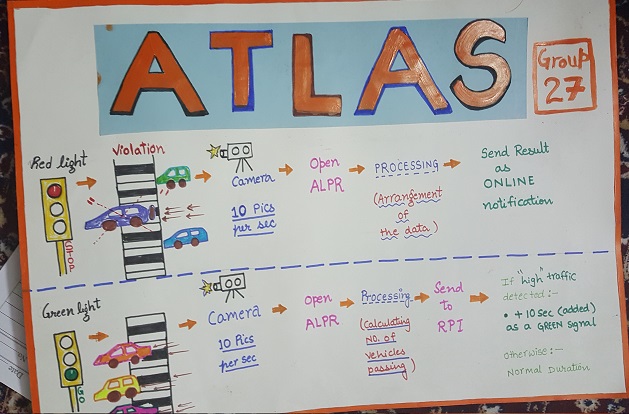 ATLAS
Group
27
Red light
Violation
STOP
Camera
10 Pics
per sec
Open
ALPR
PROCESSING
(Arrangement
of
the data)
Send Result
as
ONLINE
notification
Green light
GO
Camera
10 Pics
per sec
Open
ALPR
Processing
(Calculating
NO. of
vehicles
passing)
Send
to
RPI
If "high" traffic
detected:-
• + 10 sec (added)
as a GREEN signal
Otherwise:-
Normal Duration